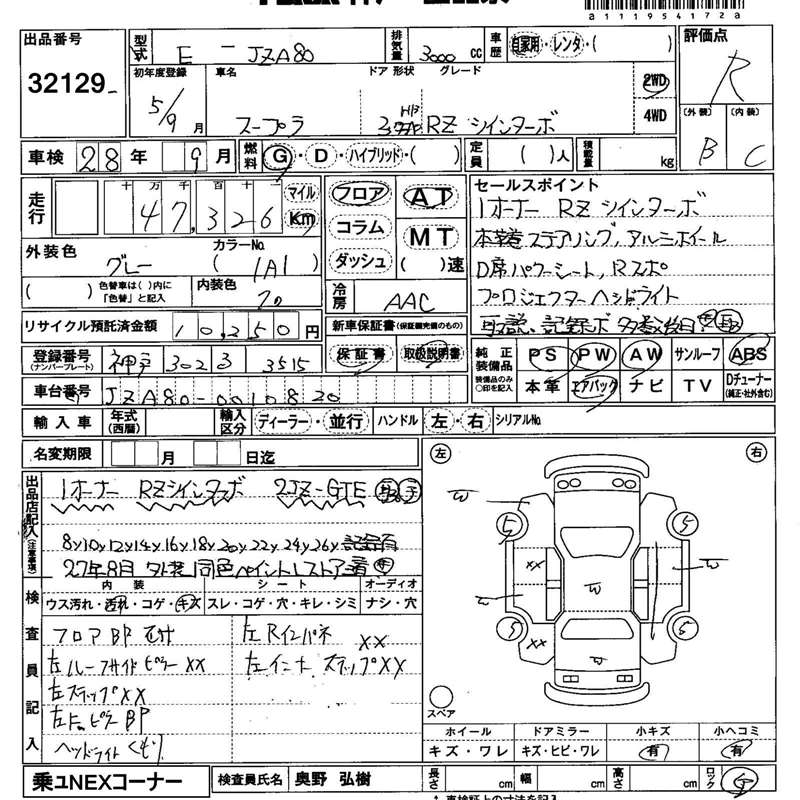 a1119541 72a
出品番号
32129
型式
E ー JZA80
排気量
3000 cc
車歴
自家用・レンタ・( )
評価点
R
初年度登録
5/9月
車名
スープラ
ドア 形状
グレード
3 HB RZ ツインターボ
2WD
4WD
(外装)
B
(内装)
C
車検 28年 9月
燃料
G・D・ハイブリッド・( )
定員 ( )人
積載量 kg
走行
十 万 千 百 十
47,326
マイル
Km
フロア
コラム
ダッシュ
AT
MT
( )速
セールスポイント
1オーナー RZ ツインターボ
本革巻ステアリング, アルミホイール
D席パワーシート, Rスポ
プロジェクターヘッドライト
取説, 記録ボ
外装色
グレー
カラーNo.
( 1A1 )
( )
色替車は( )内に「色替」と記入
内装色
冷房
AAC
リサイクル預託済金額 10,250円
新車保証書(保証継続のもの)
保証書
取扱説明書
登録番号
(ナンバープレート)
神戸 302 る 3515
純正装備品
装備品のみ○印を記入
PS PW AW サンルーフ ABS
本革 エアバック ナビ TV Dチューナー
(純正・社外含む)
車台番号 JZA80-0010820
輸入車
年式(西暦)
輸入区分
ディーラー・並行
ハンドル
左・右
シリアルNo.
名変期限 月 日迄
出品店記入(注意事項)
1オーナー RZツインターボ 2JZ-GTE
8y10y12y14y16y18y20y22y24y26y記録有
27年8月 外装同色ペイントレストア済
検査員記入
内装
ウス汚れ・汚れ・コゲ・キズ
シート
スレ・コゲ・穴・キレ・シミ
オーディオ
ナシ・穴
フロアBP
左Rインパネ XX
左ルーフサイドピラーXX
左インナーステップXX
左ステップXX
左Fピラー BP
ヘッドライトくもり
左
右
5
5
5
5
XX
XX
W
W
W
W
W
スペア
ホイール
キズ・ワレ
ドアミラー
キズ・ヒビ・ワレ
小キズ
有
小ヘコミ
有
乗ユNEXコーナー
検査員氏名 奥野 弘樹
長さ cm
幅 cm
高さ cm
ロック